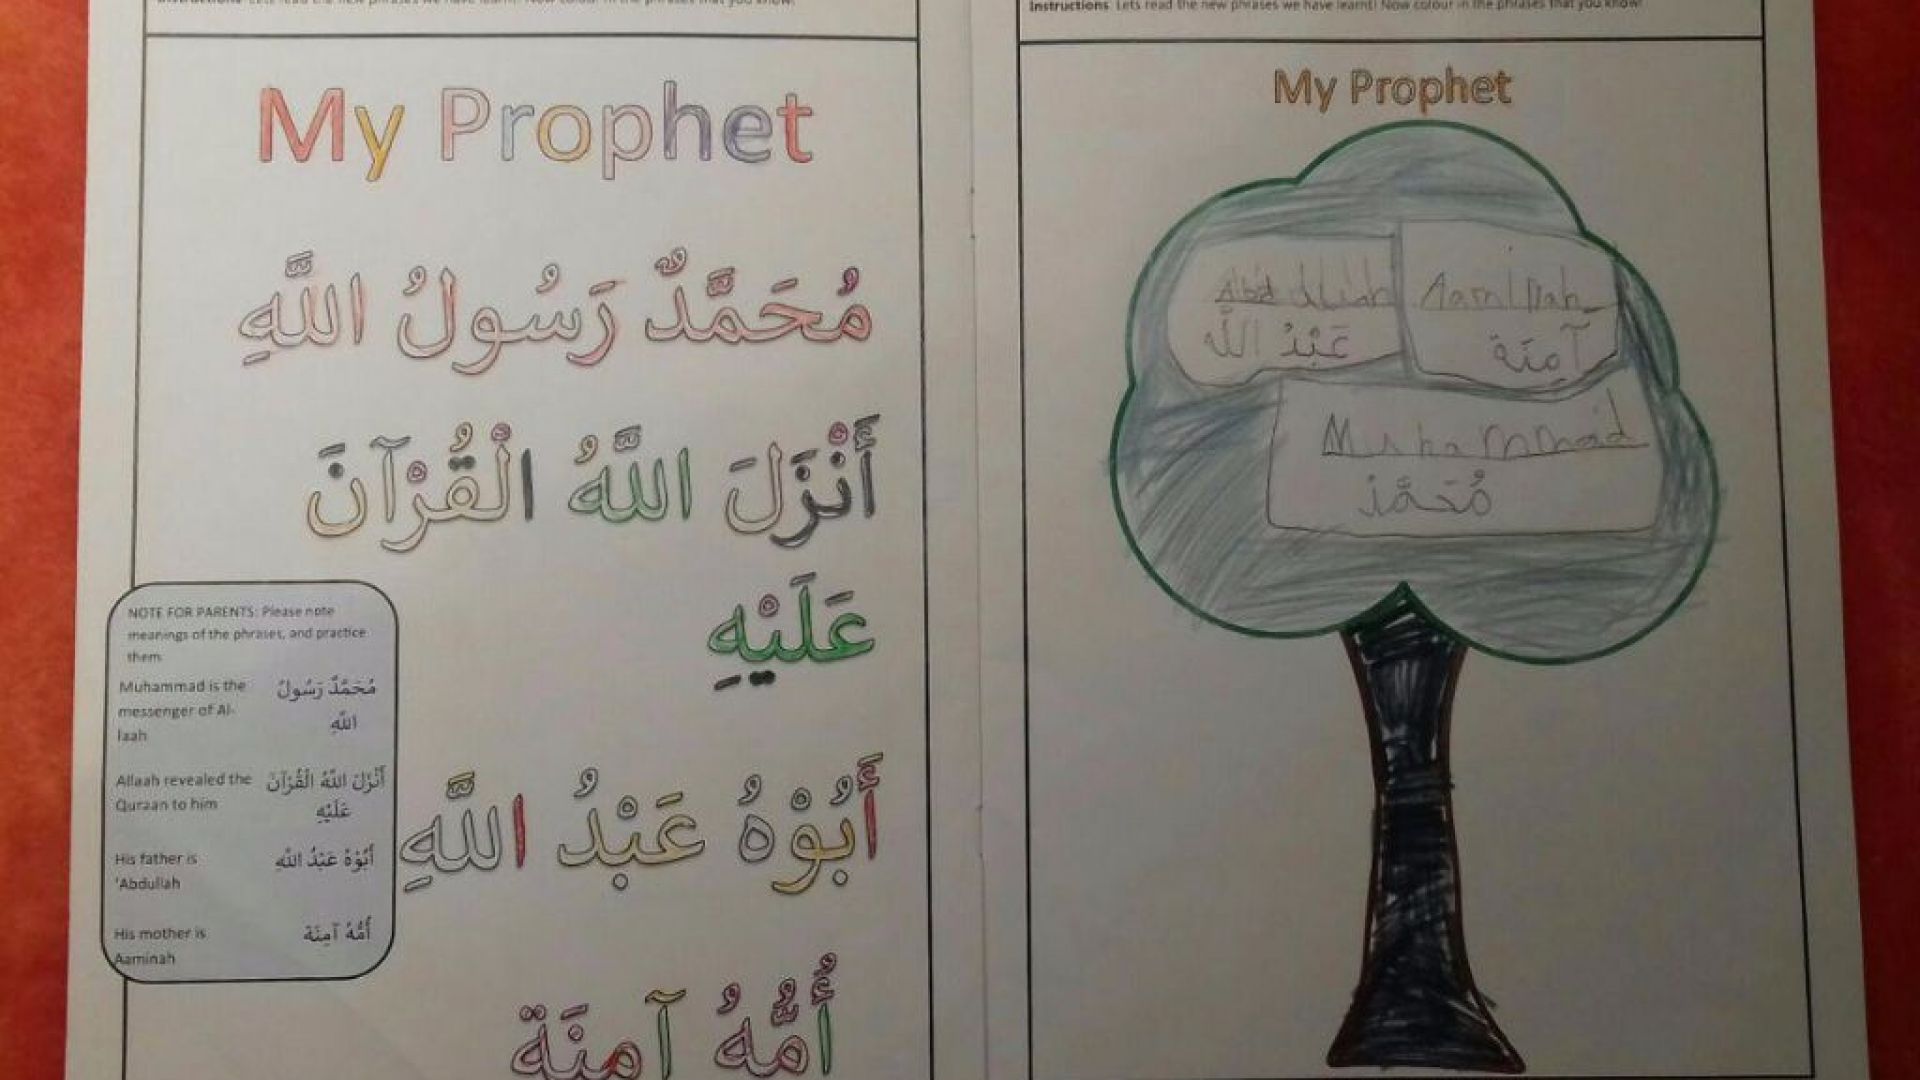 Instructions Lets read the new phrases we have learnt! Now colour in the phrases that you know!
My Prophet
مُحَمَّدٌ رَسُولُ اللَّهِ
أَنْزَلَ اللَّهُ الْقُرْآنَ
عَلَيْهِ
أَبُوْهُ عَبْدُ اللَّهِ
أُمُّهُ آمِنَة
NOTE FOR PARENTS: Please note
meanings of the phrases, and practice
them
Muhammad is the مُحَمَّدٌ رَسُولُ
messenger of Al-
laah اللَّهِ
Allaah revealed the أَنْزَلَ اللَّهُ الْقُرْآنَ
Quraan to him عَلَيْهِ
His father is أَبُوْهُ عَبْدُ اللَّهِ
'Abdullah
His mother is أُمُّهُ آمِنَة
Aaminah
Instructions Lets read the new phrases we have learnt! Now colour in the phrases that you know!
My Prophet
Abdullah Aaminah
عَبْدُ اللَّه آمِنَة
Muhammad
مُحَمَّد